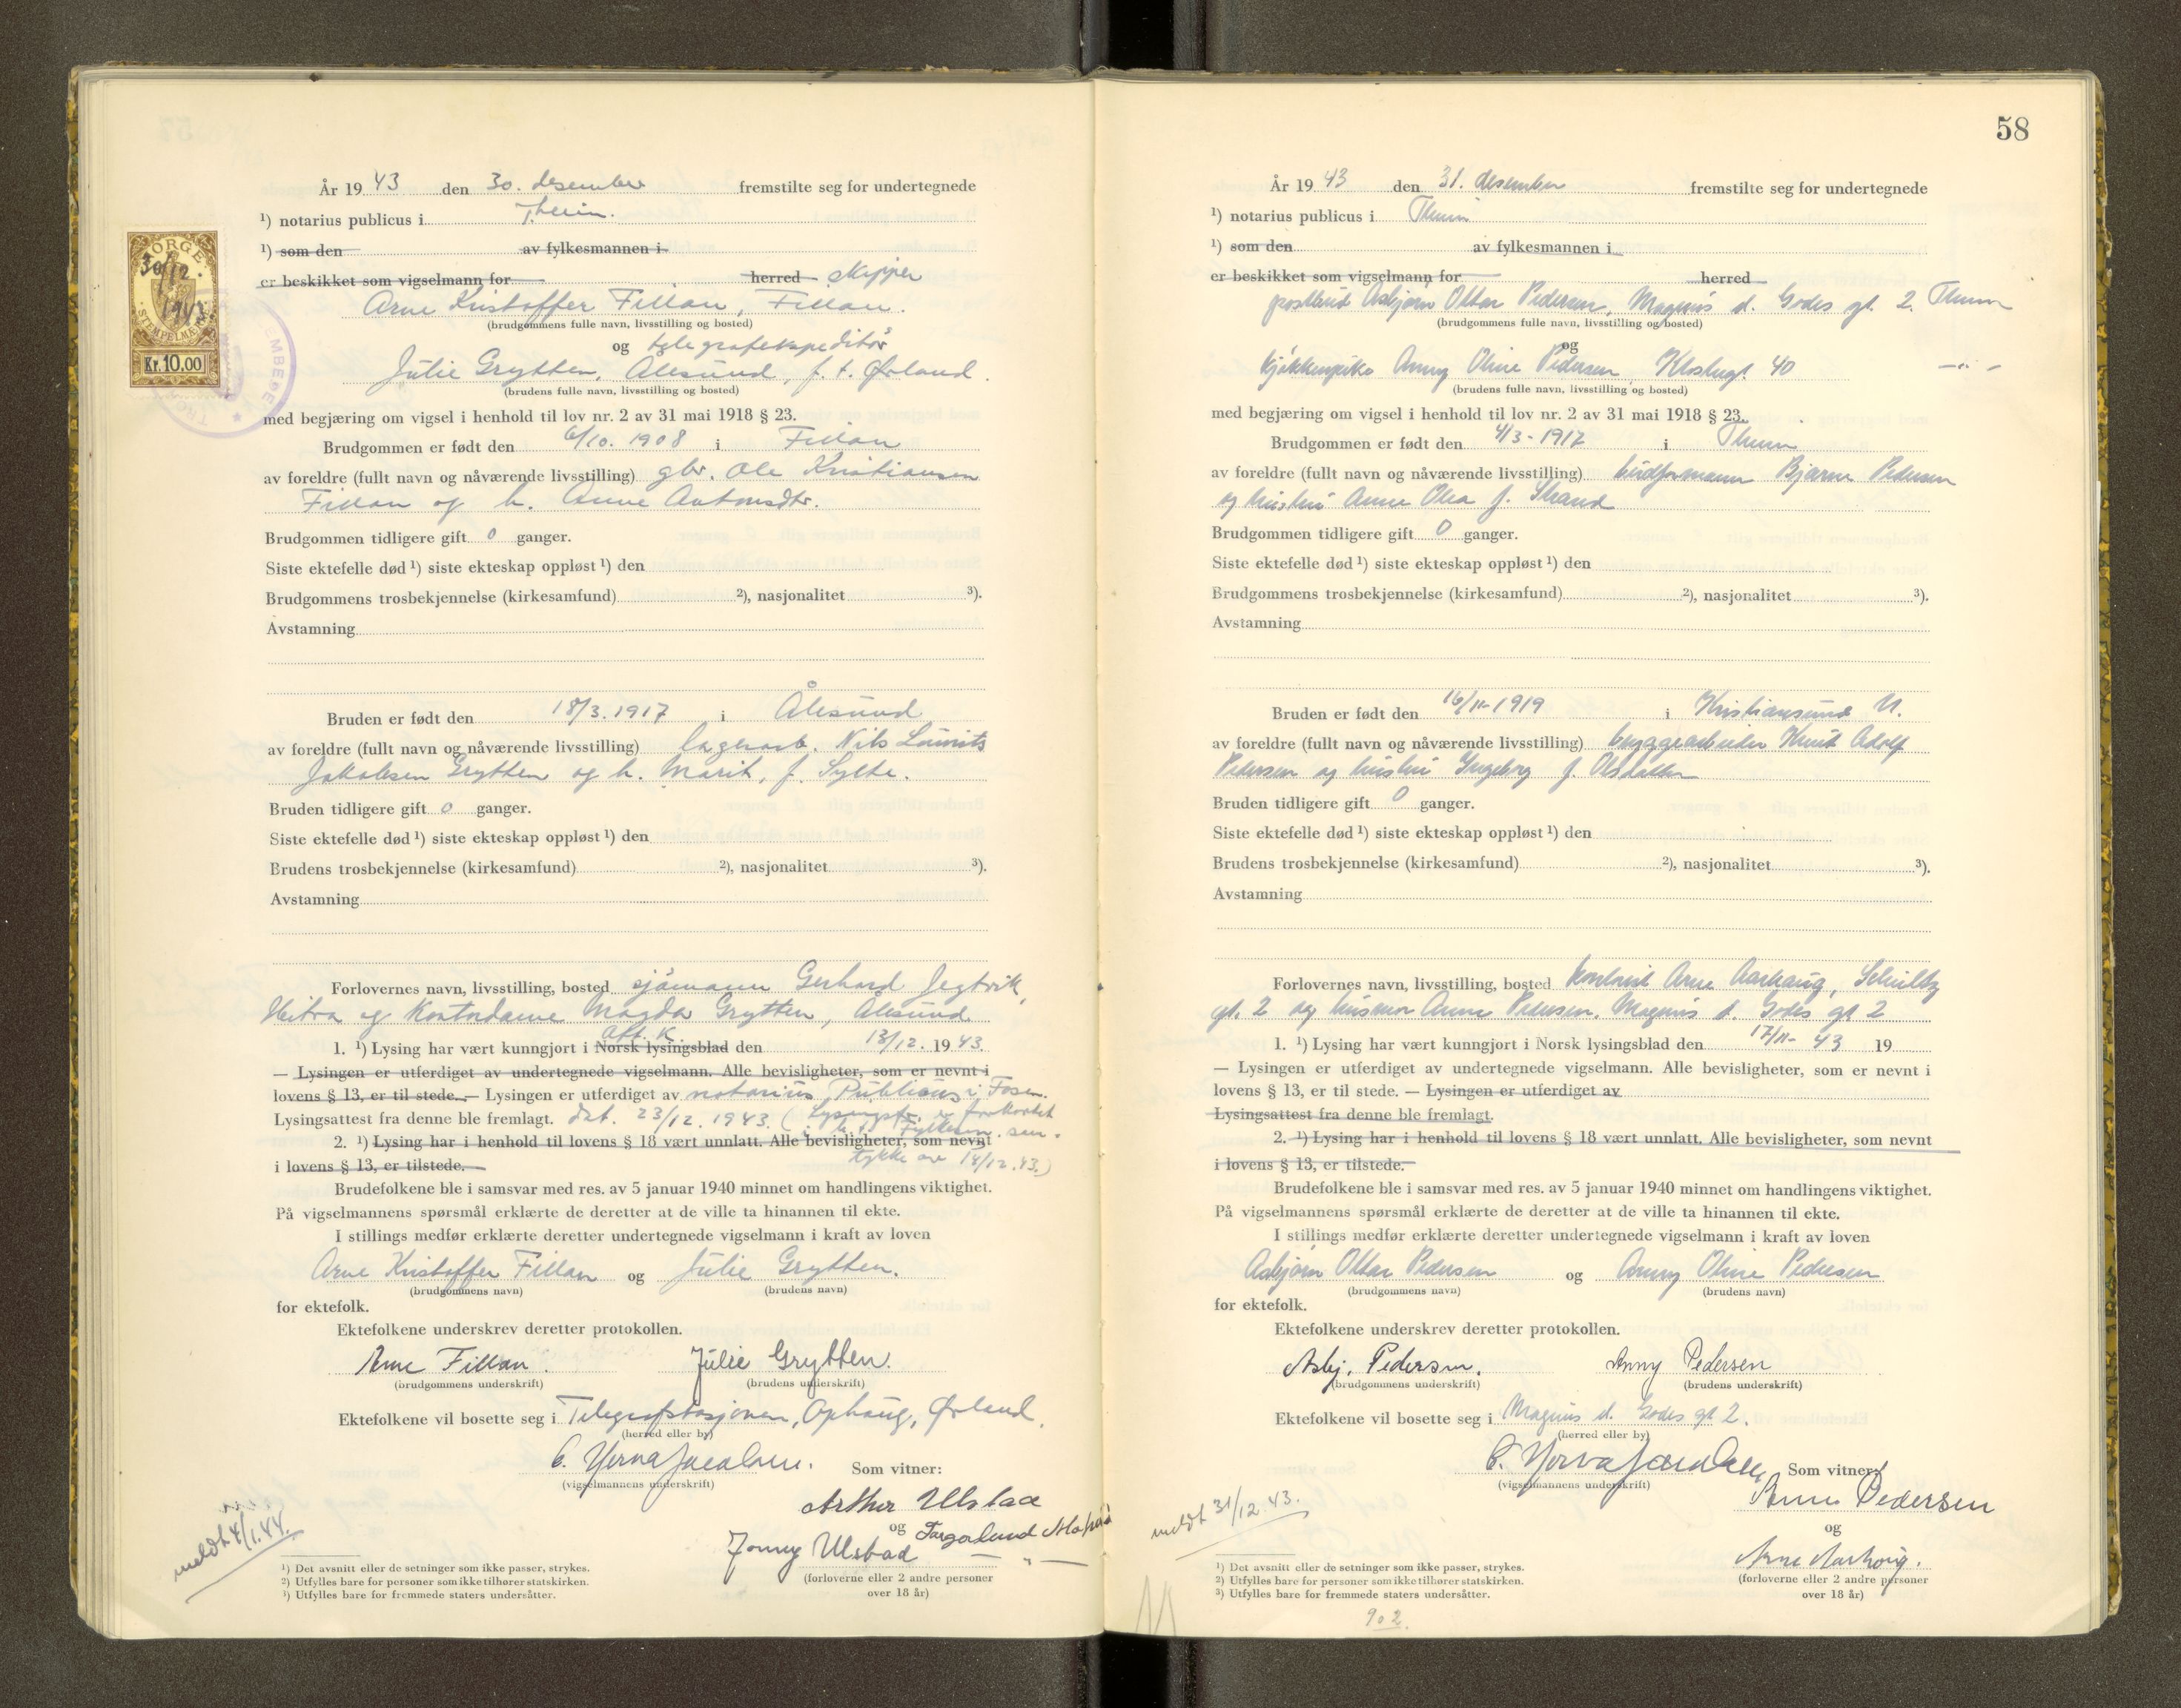 År 19 43 den 30. desember fremstilte seg for undertegnede
¹) notarius publicus i T.heim.
¹) som den av fylkesmannen i
er beskikket som vigselmann for herred skipper
Arne Kristoffer Fillan, Fillan.
(brudgommens fulle navn, livsstilling og bosted)
og telegrafekspeditør
Julie Grytten, Ålesund, f. t. Ørland.
(brudens fulle navn, livsstilling og bosted)
med begjæring om vigsel i henhold til lov nr. 2 av 31 mai 1918 § 23.
Brudgommen er født den 6/10. 1908 i Fillan
av foreldre (fullt navn og nåværende livsstilling) gbr. Ole Kristiansen
Fillan og h. Anne Antonsdtr.
Brudgommen tidligere gift 0 ganger.
Siste ektefelle død ¹) siste ekteskap oppløst ¹) den
Brudgommens trosbekjennelse (kirkesamfund) ²), nasjonalitet ³).
Avstamning
Bruden er født den 18/3. 1917 i Ålesund
av foreldre (fullt navn og nåværende livsstilling) lagerarb. Nils Lauritz
Jakobsen Grytten og h. Marit, f. Sylte.
Bruden tidligere gift 0 ganger.
Siste ektefelle død ¹) siste ekteskap oppløst ¹) den
Brudens trosbekjennelse (kirkesamfund) ²), nasjonalitet ³).
Avstamning
Forlovernes navn, livsstilling, bosted sjømann Gerhard Jegtvik,
Hitra og kontordame Magda Grytten, Ålesund
Aft. K.
1. ¹) Lysing har vært kunngjort i Norsk lysingsblad den 13/12. 19 43.
— Lysingen er utferdiget av undertegnede vigselmann. Alle bevisligheter, som er nevnt i
lovens § 13, er til stede. — Lysingen er utferdiget av notarius Publicus i Fosen.
Lysingsattest fra denne ble fremlagt. dat. 23/12. 1943. (Lysingsfr. er forkortet
2. ¹) Lysing har i henhold til lovens § 18 vært unnlatt. Alle bevisligheter, som nevnt
i h. t. Fylkesm. sam-
i lovens § 13, er tilstede. —
tykke av 14/12.43.)
Brudefolkene ble i samsvar med res. av 5 januar 1940 minnet om handlingens viktighet.
På vigselmannens spørsmål erklærte de deretter at de ville ta hinannen til ekte.
I stillings medfør erklærte deretter undertegnede vigselmann i kraft av loven
Arne Kristoffer Fillan og Julie Grytten.
(brudgommens navn) (brudens navn)
for ektefolk.
Ektefolkene underskrev deretter protokollen.
Arne Fillan. Julie Grytten.
(brudgommens underskrift) (brudens underskrift)
Ektefolkene vil bosette seg i Telegrafstasjonen, Ophaug, Ørland.
(herred eller by)
Som vitner:
(vigselmannens underskrift)
Arthur Ulstad
og
Jonny Ulstad
(forloverne eller 2 andre personer
over 18 år)
meldt 4/1.44.
¹) Det avsnitt eller de setninger som ikke passer, strykes.
²) Utfylles bare for personer som ikke tilhører statskirken.
³) Utfylles bare for fremmede staters undersåtter.
NORGE
30/12.
1943
STEMPELMERKE
Kr. 10.00
58
År 19 43 den 31. desember fremstilte seg for undertegnede
¹) notarius publicus i Theim
¹) som den av fylkesmannen i
er beskikket som vigselmann for herred
postbud Asbjørn Ottar Pedersen, Magnus d. Godes gt. 2. Theim
(brudgommens fulle navn, livsstilling og bosted)
og
kjøkkenpike Anny Oline Pedersen, Klostergt. 40 — " —
(brudens fulle navn, livsstilling og bosted)
med begjæring om vigsel i henhold til lov nr. 2 av 31 mai 1918 § 23.
Brudgommen er født den 4/3 - 1917 i Theim
av foreldre (fullt navn og nåværende livsstilling) budformann Bjarne Pedersen
og hustru Anna Olea f. Strand
Brudgommen tidligere gift 0 ganger.
Siste ektefelle død ¹) siste ekteskap oppløst ¹) den
Brudgommens trosbekjennelse (kirkesamfund) ²), nasjonalitet ³).
Avstamning
Bruden er født den 16/11-1919 i Kristiansund N.
av foreldre (fullt navn og nåværende livsstilling) bryggearbeider Knut Adolf
Pedersen og hustru Ingeborg f. Olsdatter
Bruden tidligere gift 0 ganger.
Siste ektefelle død ¹) siste ekteskap oppløst ¹) den
Brudens trosbekjennelse (kirkesamfund) ²), nasjonalitet ³).
Avstamning
Forlovernes navn, livsstilling, bosted kontorist Arne Aarhaug, Schultz
gt. 2 og husmor Anna Pedersen, Magnus d. Godes gt 2
1. ¹) Lysing har vært kunngjort i Norsk lysingsblad den 17/11- 43 19
— Lysingen er utferdiget av undertegnede vigselmann. Alle bevisligheter, som er nevnt i
lovens § 13, er til stede. — Lysingen er utferdiget av
Lysingsattest fra denne ble fremlagt.
2. ¹) Lysing har i henhold til lovens § 18 vært unnlatt. Alle bevisligheter, som nevnt
i lovens § 13, er tilstede. —
Brudefolkene ble i samsvar med res. av 5 januar 1940 minnet om handlingens viktighet.
På vigselmannens spørsmål erklærte de deretter at de ville ta hinannen til ekte.
I stillings medfør erklærte deretter undertegnede vigselmann i kraft av loven
Asbjørn Ottar Pedersen og Anny Oline Pedersen
(brudgommens navn) (brudens navn)
for ektefolk.
Ektefolkene underskrev deretter protokollen.
Asbj. Pedersen. Anny Pedersen
(brudgommens underskrift) (brudens underskrift)
Ektefolkene vil bosette seg i Magnus d. Godes gt 2.
(herred eller by)
Som vitner:
(vigselmannens underskrift)
Anna Pedersen
og
Arne Aarhaug.
(forloverne eller 2 andre personer
over 18 år)
meldt 31/12.43.
¹) Det avsnitt eller de setninger som ikke passer, strykes.
²) Utfylles bare for personer som ikke tilhører statskirken.
³) Utfylles bare for fremmede staters undersåtter.
902.